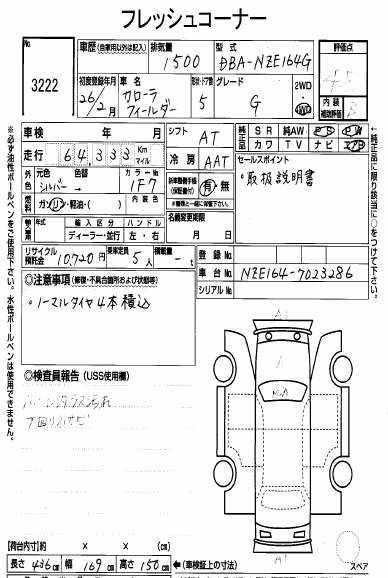 フレッシュコーナー
No. 3222
車歴(自家用以外は記入) 排気量 1500 型式 DBA-NZE164G 評価点 4.5
初度登録年月 26/2月 車名 カローラフィールダー 形状・ドア数 5 グレード G 2WD・4WD 内装補助評価 B
車検 年 月 シフト AT 純正品 SR 純AW PS PW
走行 64,333 Km マイル 冷房 AAT カワ TV ナビ エアB
外色 元色 シルバー → 色替 カラーNo. 1F7 新車整備手帳(保証書付) 有・無 セールスポイント
・取扱説明書
燃料 ガソリン・軽油・( ) 内装色
年式 年 輸入区分 ディーラー・並行 ハンドル 左・右 名義変更期限 月 日
リサイクル預託金 10,720円 乗車定員 5人 積載量 - t 登録No.
車台No. NZE164-7023286
シリアルNo.
◎注意事項(修復・不具合箇所および状態等)
・ノーマルタイヤ4本積込
◎検査員報告(USS使用欄)
下回りサビ
A1
A1
スペア
【荷台内寸】約 × × (cm)
長さ 436cm 幅 169cm 高さ 150cm ←(車検証上の寸法)
※必ず油性ボールペンをご使用下さい。水性ボールペンは使用できません。
←純正品に限り該当に○をつけて下さい。